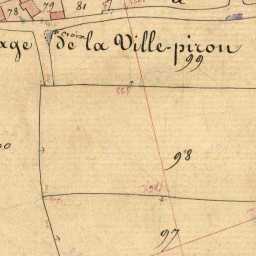 78 79 81
age de la Ville-piron
99
98
97